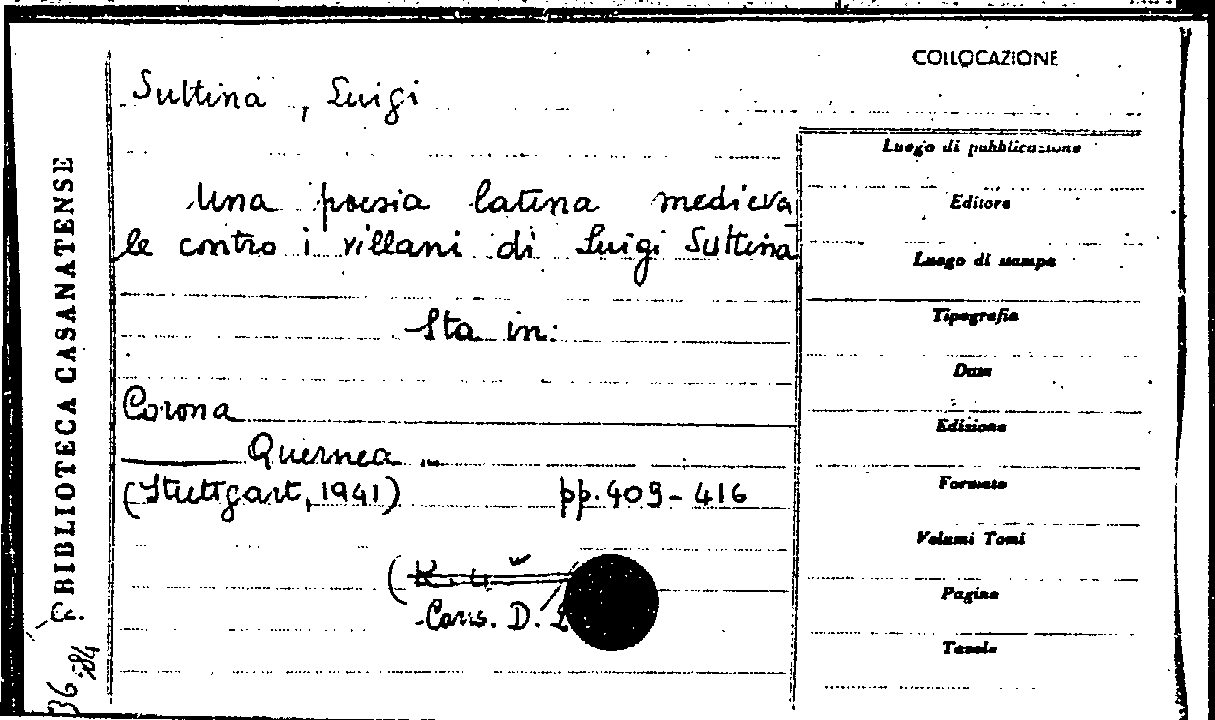 COLLOCAZIONE
Suttina, Luigi
Una poesia latina medieva
le contro i villani di Luigi Suttina
Sta in:
Corona
Quernea
(Stuttgart, 1941) pp. 409-416
Cons. D.
Luogo di pubblicazione
Editore
Luogo di stampa
Tipografia
Data
Edizione
Formato
Volumi Tomi
Pagine
Tavole
BIBLIOTECA CASANATENSE